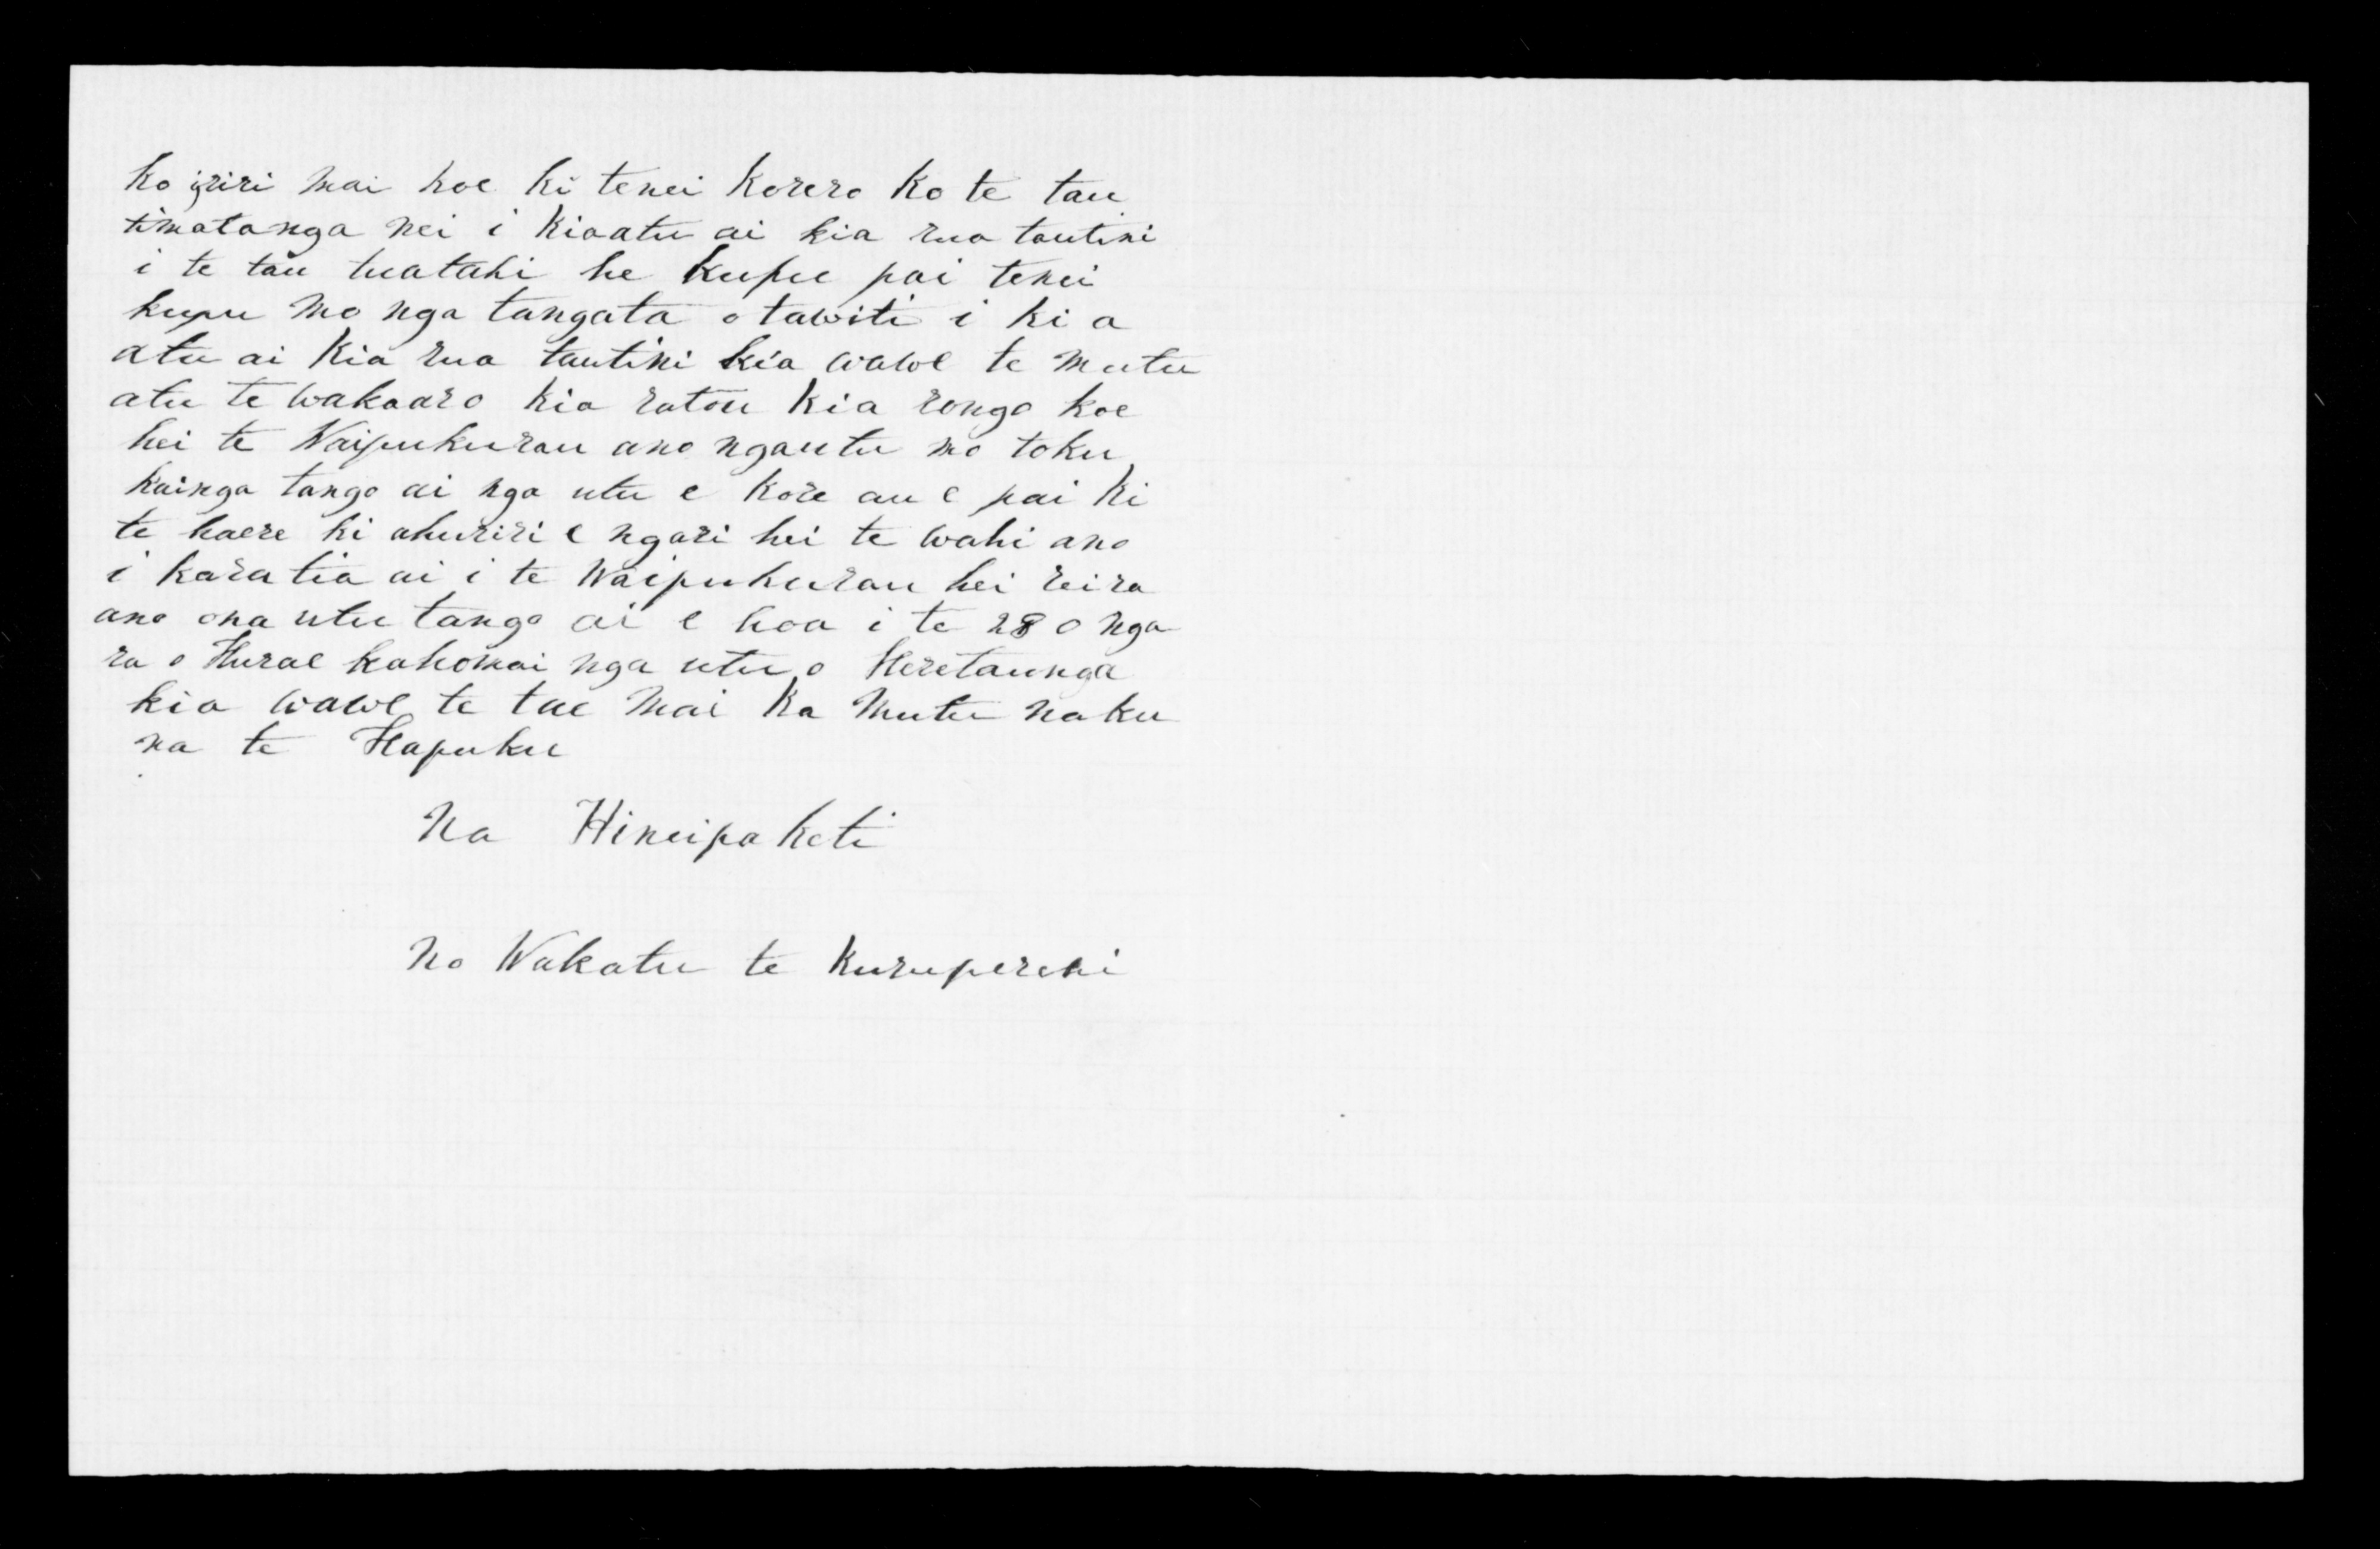 ko iriri mai koe ki tenei korero ko te tau
timatanga nei i kiaatu ai kia rua tautini
i te tau tuatahi he kupu pai tenei
kupu mo nga tangata o tawiti i ki a
atu ai kia rua tautini kia wawe te mutu
atu te wakaaro kia ratou kia rongo koe
hei te Waipukurau ano ngautu mo toku
kainga tango ai nga utu e kore au e pai ki
te haere ki ahuriri e ngari hei te wahi ano
i karatia ai i te Waipukurau hei reira
ano ona utu tango ai e hoa i te 28 o nga
ra o Hurae kahomai nga utu o Heretaunga
kia wawe te tae mai ka mutu naku
na te Hapuku
Na Hineipaketi
No Wakatu te kurupereni